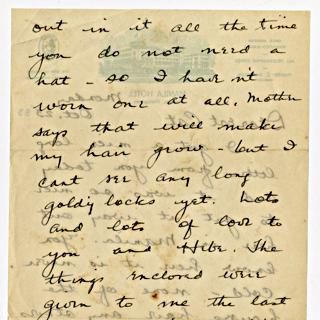 out in it all the time
you do not need a
hat - so I have n't
worn one at all. Mother
says that will make
my hair grow - but I
cant see any long
goldy locks yet. Lots
and lots of love to
you and Hebe. The
things enclosed were
given to me the last